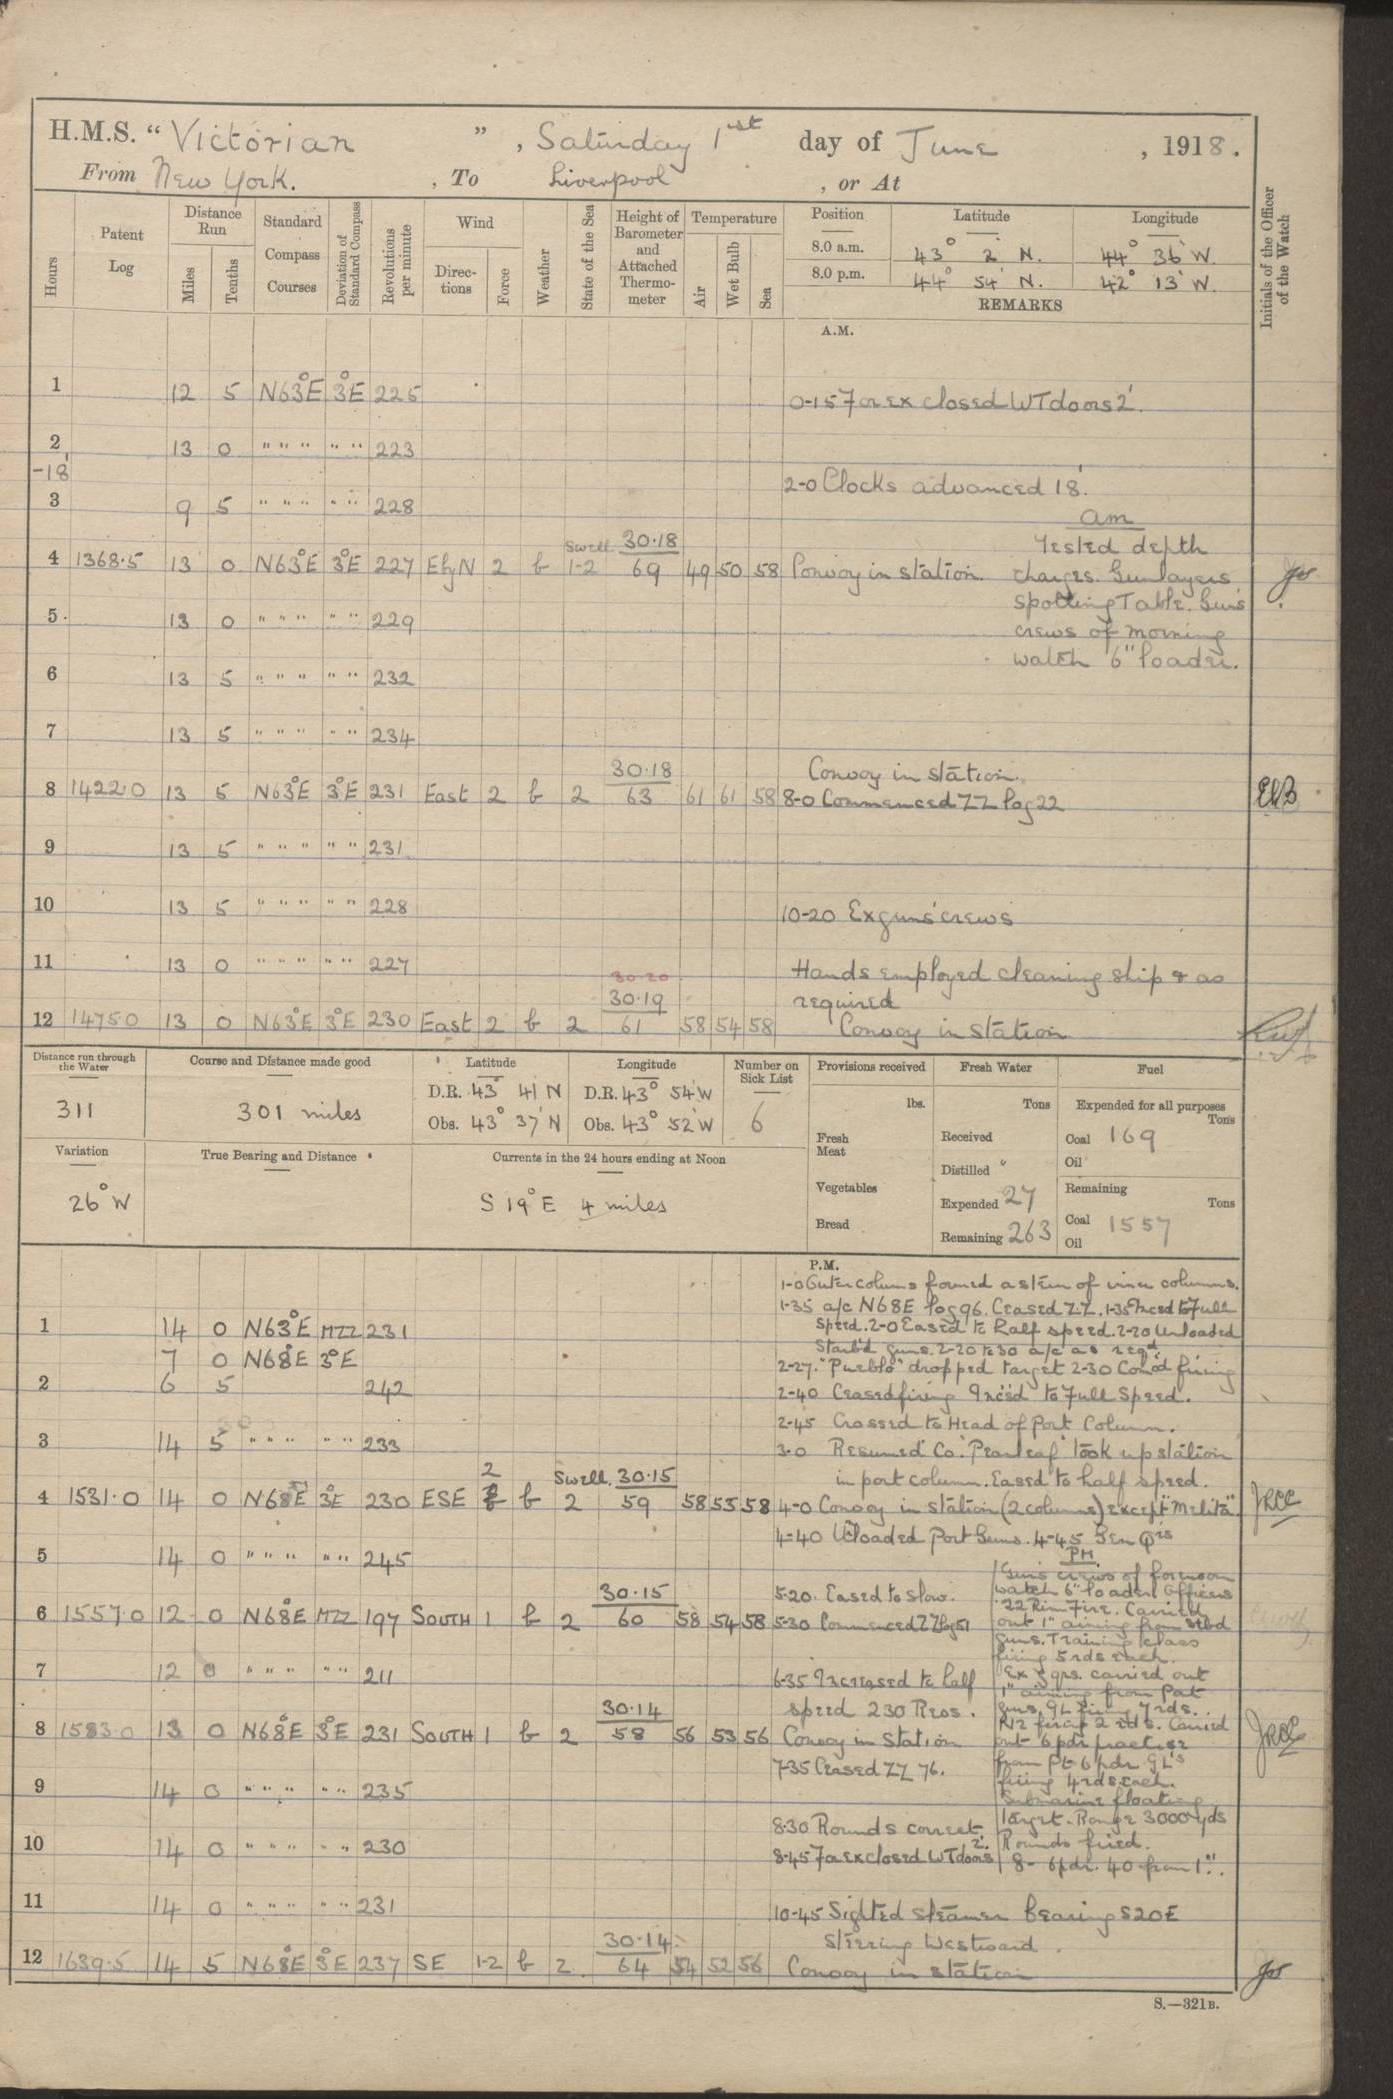 H.M.S. “ Victorian ” , Saturday 1st day of June , 1918.
From New York. , To Liverpool , or At
Hours
Patent Log
Distance Run
Miles
Tenths
Standard Compass Courses
Deviation of Standard Compass
Revolutions per minute
Wind
Directions
Force
Weather
State of the Sea
Height of Barometer and Attached Thermometer
Temperature
Air
Wet Bulb
Sea
Position Latitude Longitude
8.0 a.m. 43° 2' N. 44° 36' W.
8.0 p.m. 44° 54' N. 42° 13' W.
REMARKS
Initials of the Officer of the Watch
A.M.
1 12 5 N63°E 3°E 225
0-15 For ex closed WT doors 2'.
2 13 0 " " " " " 223
-18'
2-0 Clocks advanced 18'.
3 9 5 " " " " " 228
am
Tested depth
Swell 30·18
4 1368·5 13 0 N63°E 3°E 227 EbyN 2 b 1-2 69 49 50 58 Convoy in station. charges. Gunlayers
spotting Table. Guns
5 13 0 " " " " " 229
crews of morning
watch 6" loader.
6 13 5 " " " " " 232
7 13 5 " " " " " 234
30·18 Convoy in station.
8 1422·0 13 5 N63°E 3°E 231 East 2 b 2 63 61 61 58 8-0 Commenced ZZ log 22
9 13 5 " " " " " 231
10 13 5 " " " " " 228
10-20 Ex guns' crews
11 13 0 " " " " " 227
30·20 Hands employed cleaning ship & as
30·19 required
12 1475·0 13 0 N63°E 3°E 230 East 2 b 2 61 58 54 58 Convoy in station
Distance run through the Water
311
Course and Distance made good
301 miles
Latitude
D.R. 43° 41' N
Obs. 43° 37' N
Longitude
D.R. 43° 54' W
Obs. 43° 52' W
Number on Sick List
6
Provisions received
lbs.
Fresh Meat
Vegetables
Bread
Fresh Water
Tons
Received
Distilled "
Expended 27
Remaining 263
Fuel
Expended for all purposes
Tons
Coal 169
Oil
Remaining
Tons
Coal 1557
Oil
Variation
26° W
True Bearing and Distance
Currents in the 24 hours ending at Noon
S 19° E 4 miles
P.M.
1-0 Outer colums formed astern of inner columns.
1-35 a/c N68E log 96. Ceased ZZ. 1-35 Inced to Full
1 14 0 N63°E MZZ 231
speed. 2-0 Eased to half speed. 2-20 Unloaded
Starb'd guns. 2-20 to 30 a/c as reqd.
7 0 N68°E 3°E
2-27. "Pueblo" dropped target 2-30 Com'd firing
2 6 5 242
2-40 Ceased firing Inc'ed to Full Speed.
2-45 Crossed to Head of Port Column.
3 14 5 " " " " " 233
3-0 Resumed Co. "Pearleaf" took up station
in port column. Eased to half speed.
2 Swell. 30·15
4 1531·0 14 0 N68°E 3°E 230 ESE b 2 59 58 55 58 4-0 Convoy in station (2 columns) except "Melita"
4-40 Unloaded Port Guns. 4-45 Gen Qrs
5 14 0 " " " " " 245
PM
Guns crews of forenoon
30·15 5-20. Eased to slow. watch 6" loader. Officers
.22 Rim Fire. Carried
6 1557·0 12 0 N68°E MZZ 197 SOUTH 1 b 2 60 58 54 58 5-30 Commenced ZZ log 51 out 1" aiming from stbd
guns. Training class
firing 5 rds each.
7 12 0 " " " " " 211
6-35 Increased to half Ex 3 qrs. carried out
1" aiming from Port
30·14 speed 230 Revs. guns, GL firing 7 rds.
8 1583·0 13 0 N68°E 3°E 231 SOUTH 1 b 2 58 56 53 56 Convoy in station firing 2 rds. Carried
out 6 pdr practise
7-35 Ceased ZZ 76. from Pt 6 pdr GL's
9 14 0 " " " " " 235
firing 4 rds each.
Submarine floating
8-30 Rounds correct. Target. Range 3000 yds
10 14 0 " " " " " 230
Rounds fired.
8-45 For ex closed WT doors 2'. 8- 6pdr. 40 from 1".
11 14 0 " " " " " 231
10-45 Sighted steamer bearing S20E
30·14 steering Westward.
12 1639·5 14 5 N68°E 3°E 237 SE 1-2 b 2 64 54 52 56 Convoy in station
S.—321B.